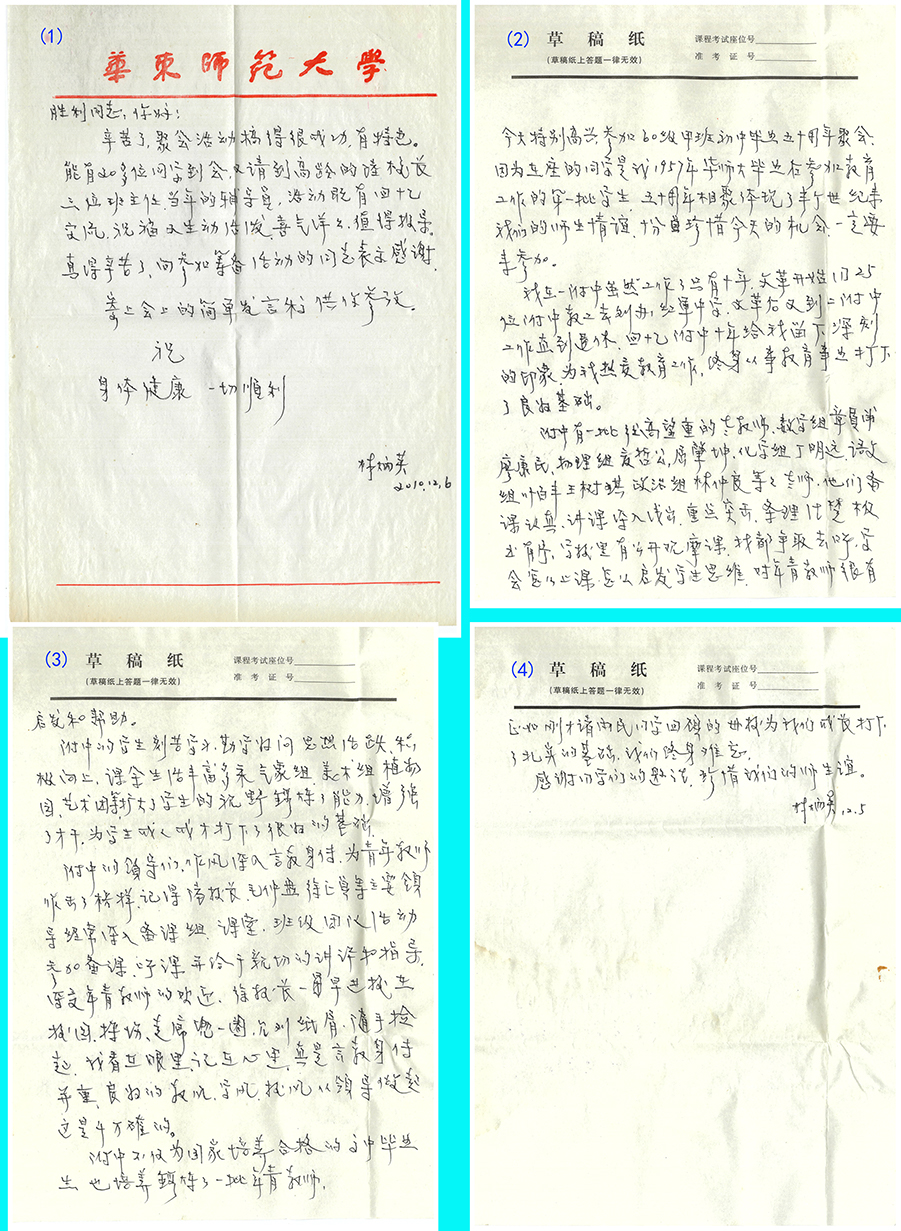 (1)
華東師範大學
胜利同志，你好：
辛苦了，聚会活动搞得很成功，有特色。
能有20多位同学到会，又请到高龄的陆校长
三位班主任，当年的辅导员，活动能有回忆
交流，祝福又生动活泼，喜气洋々，值得报导。
真得辛苦了，向参加筹备活动的同志表示感谢。
寄上会上的简单发言稿供你参考。
祝
身体健康 一切顺利
林炳英
2010.12.6
(2)
草稿纸
(草稿纸上答题一律无效)
课程考试座位号
准考证号
今天特别高兴参加60级甲班初中毕业五十周年聚会，
因为在座的同学是我1957年华师大毕业后参加教育
工作的第一批学生，五十周年相聚体现了半个世纪来
我们的师生情谊，十分珍惜今天的机会一定要
来参加。
我在一附中虽然工作了只有十年，文革开始 25
位附中教工去创办红军中学，文革后又到二附中
工作直到退休，回忆附中十年给我留下深刻
的印象，为我热爱教育工作，终身从事教育事业打下
了良好基础。
附中有一批德高望重的老教师，数学组章质甫
廖康民，物理组 哲公，屈肇坤，化学组丁明远 语文
组 百丰 王树琪 政治组林仲良等々老师，他们备
课认真，讲课深入浅出，重点突出，条理清楚 板
书有序，学校里有公开观摩课，我都争取去听，学
会怎么上课，怎么启发学生思维，对年青教师很有
(3)
草稿纸
(草稿纸上答题一律无效)
课程考试座位号
准考证号
启发和帮助。
附中的学生刻苦学习，勤学好问 思想活跃，积
极向上，课余生活丰富多采 气象组 美术组 植物
园，艺术团等扩大了学生的视野 锻炼了能力，增强
了才干，为学生成人成才打下了很好的基础。
附中的领导们，作风深入 言教身传，为青年教师
作出了榜样，记得陆校长，毛仲盘 徐正贞等主要领
导经常深入备课组，课堂，班级团队活动
参加备课，听课 并给予亲切的讲评和指导，
深受年青教师的欢迎，徐校长一早进校在
校园，操场，走廊兜一圈，见到纸屑，随手捡
起，我看在眼里，记在心里，真是言教身传
并重，良好的教风，学风，校风 从领导做起
这是千万确的。
附中不仅为国家培养合格的高中毕业
生 也培养锻炼了一批年青教师，
(4)
草稿纸
(草稿纸上答题一律无效)
课程考试座位号
准考证号
正如刚才请 民同学回顾的母校为我们成长打下
了扎实的基础，我们终身难忘。
感谢同学们的邀请，珍惜我们的师生谊。
林炳英 12.5